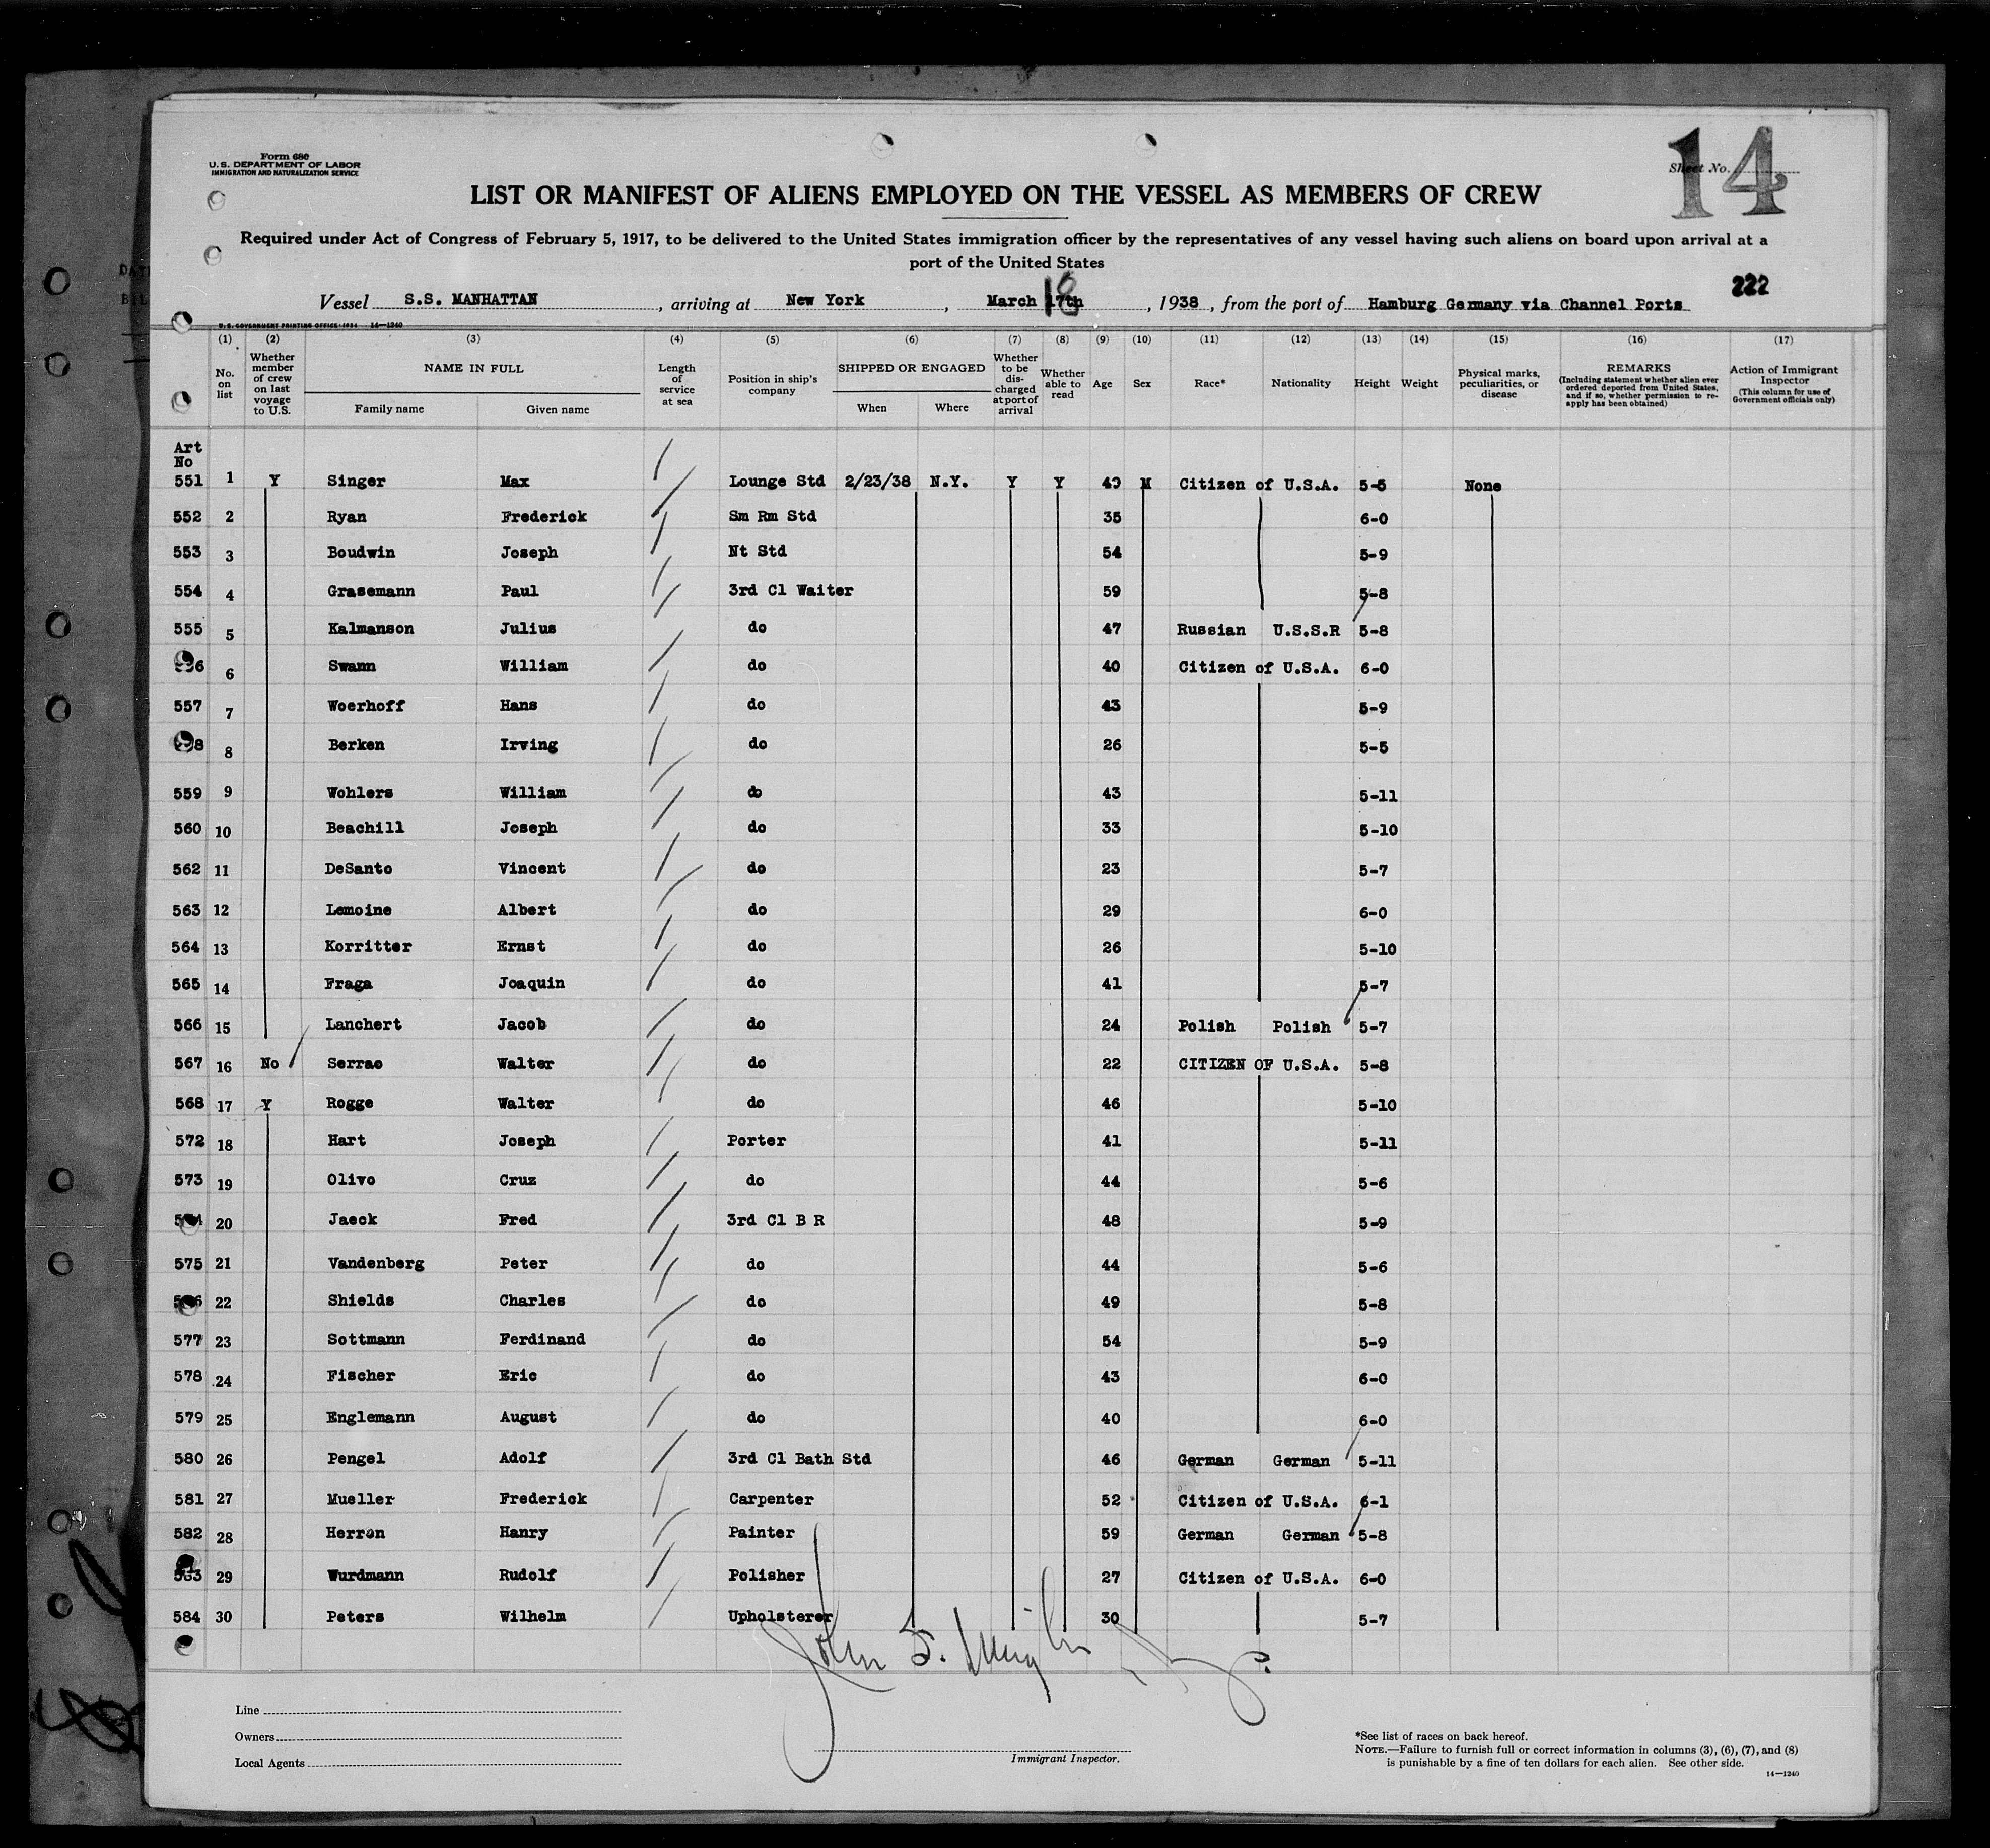 Form 680
U. S. DEPARTMENT OF LABOR
IMMIGRATION AND NATURALIZATION SERVICE
Sheet No. 14
LIST OR MANIFEST OF ALIENS EMPLOYED ON THE VESSEL AS MEMBERS OF CREW
Required under Act of Congress of February 5, 1917, to be delivered to the United States immigration officer by the representatives of any vessel having such aliens on board upon arrival at a
port of the United States
222
Vessel S.S. MANHATTAN, arriving at New York, March 17th 18, 1938, from the port of Hamburg Germany via Channel Ports
U. S. GOVERNMENT PRINTING OFFICE: 1934 14—1240
(1) (2) (3) (4) (5) (6) (7) (8) (9) (10) (11) (12) (13) (14) (15) (16) (17)
No. on list
Whether member of crew on last voyage to U.S.
NAME IN FULL
Family name Given name
Length of service at sea
Position in ship's company
SHIPPED OR ENGAGED
When Where
Whether to be discharged at port of arrival
Whether able to read
Age Sex Race* Nationality Height Weight
Physical marks, peculiarities, or disease
REMARKS
(Including statement whether alien ever ordered deported from United States, and if so, whether permission to reapply has been obtained)
Action of Immigrant Inspector
(This column for use of Government officials only)
Art
No
551 1 Y Singer Max Lounge Std 2/23/38 N.Y. Y Y 49 M Citizen of U.S.A. 5-5 None
552 2 Ryan Frederick Sm Rm Std 35 6-0
553 3 Boudwin Joseph Nt Std 54 5-9
554 4 Grasemann Paul 3rd Cl Waiter 59 5-8
555 5 Kalmanson Julius do 47 Russian U.S.S.R 5-8
556 6 Swann William do 40 Citizen of U.S.A. 6-0
557 7 Woerhoff Hans do 43 5-9
558 8 Berken Irving do 26 5-5
559 9 Wohlers William do 43 5-11
560 10 Beachill Joseph do 33 5-10
562 11 DeSanto Vincent do 23 5-7
563 12 Lemoine Albert do 29 6-0
564 13 Korritter Ernst do 26 5-10
565 14 Fraga Joaquin do 41 5-7
566 15 Lanchert Jacob do 24 Polish Polish 5-7
567 16 No Serrao Walter do 22 CITIZEN OF U.S.A. 5-8
568 17 Y Rogge Walter do 46 5-10
572 18 Hart Joseph Porter 41 5-11
573 19 Olivo Cruz do 44 5-6
574 20 Jaeck Fred 3rd Cl B R 48 5-9
575 21 Vandenberg Peter do 44 5-6
576 22 Shields Charles do 49 5-8
577 23 Sottmann Ferdinand do 54 5-9
578 24 Fischer Eric do 43 6-0
579 25 Englemann August do 40 6-0
580 26 Pengel Adolf 3rd Cl Bath Std 46 German German 5-11
581 27 Mueller Frederick Carpenter 52 Citizen of U.S.A. 6-1
582 28 Herron Hanry Painter 59 German German 5-8
583 29 Wurdmann Rudolf Polisher 27 Citizen of U.S.A. 6-0
584 30 Peters Wilhelm Upholsterer 30 5-7
John S.
Line
Owners
Local Agents
Immigrant Inspector.
*See list of races on back hereof.
NOTE.—Failure to furnish full or correct information in columns (3), (6), (7), and (8)
is punishable by a fine of ten dollars for each alien. See other side.
14—1240